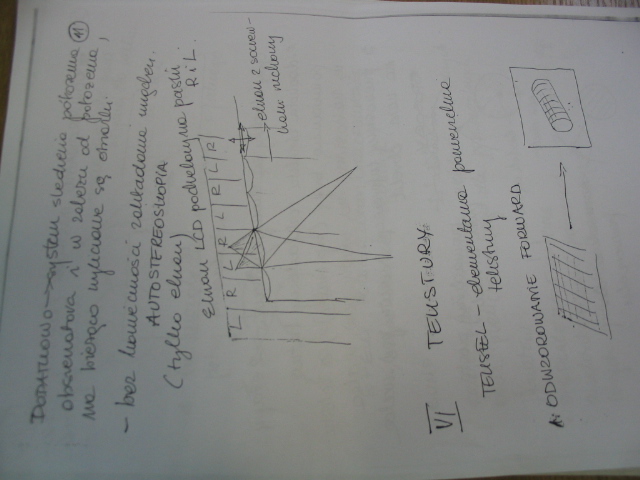 DODATKOWO → system śledzenia położenia 11
obserwatora i w zależn. od położenia,
na bieżąco wyliczane są
- bez konieczności zakładania urządzeń.
AUTOSTEREOSKOPIA
(tylko ekran)
Ekran LCD podzielony na paski
R i L.
L R L R L R L R
ekran z
nami ruchomy
VI TEKSTURY:
TEKSEL - elementarna powierzchnia
tekstury
A: ODWZOROWANIE FORWARD